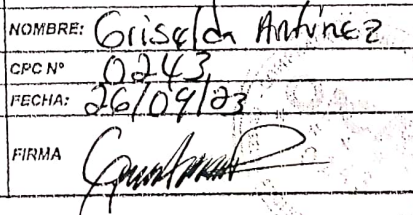 NOMBRE: Griselda Antúnez
CPC Nº 0243
FECHA: 26/09/23
FIRMA